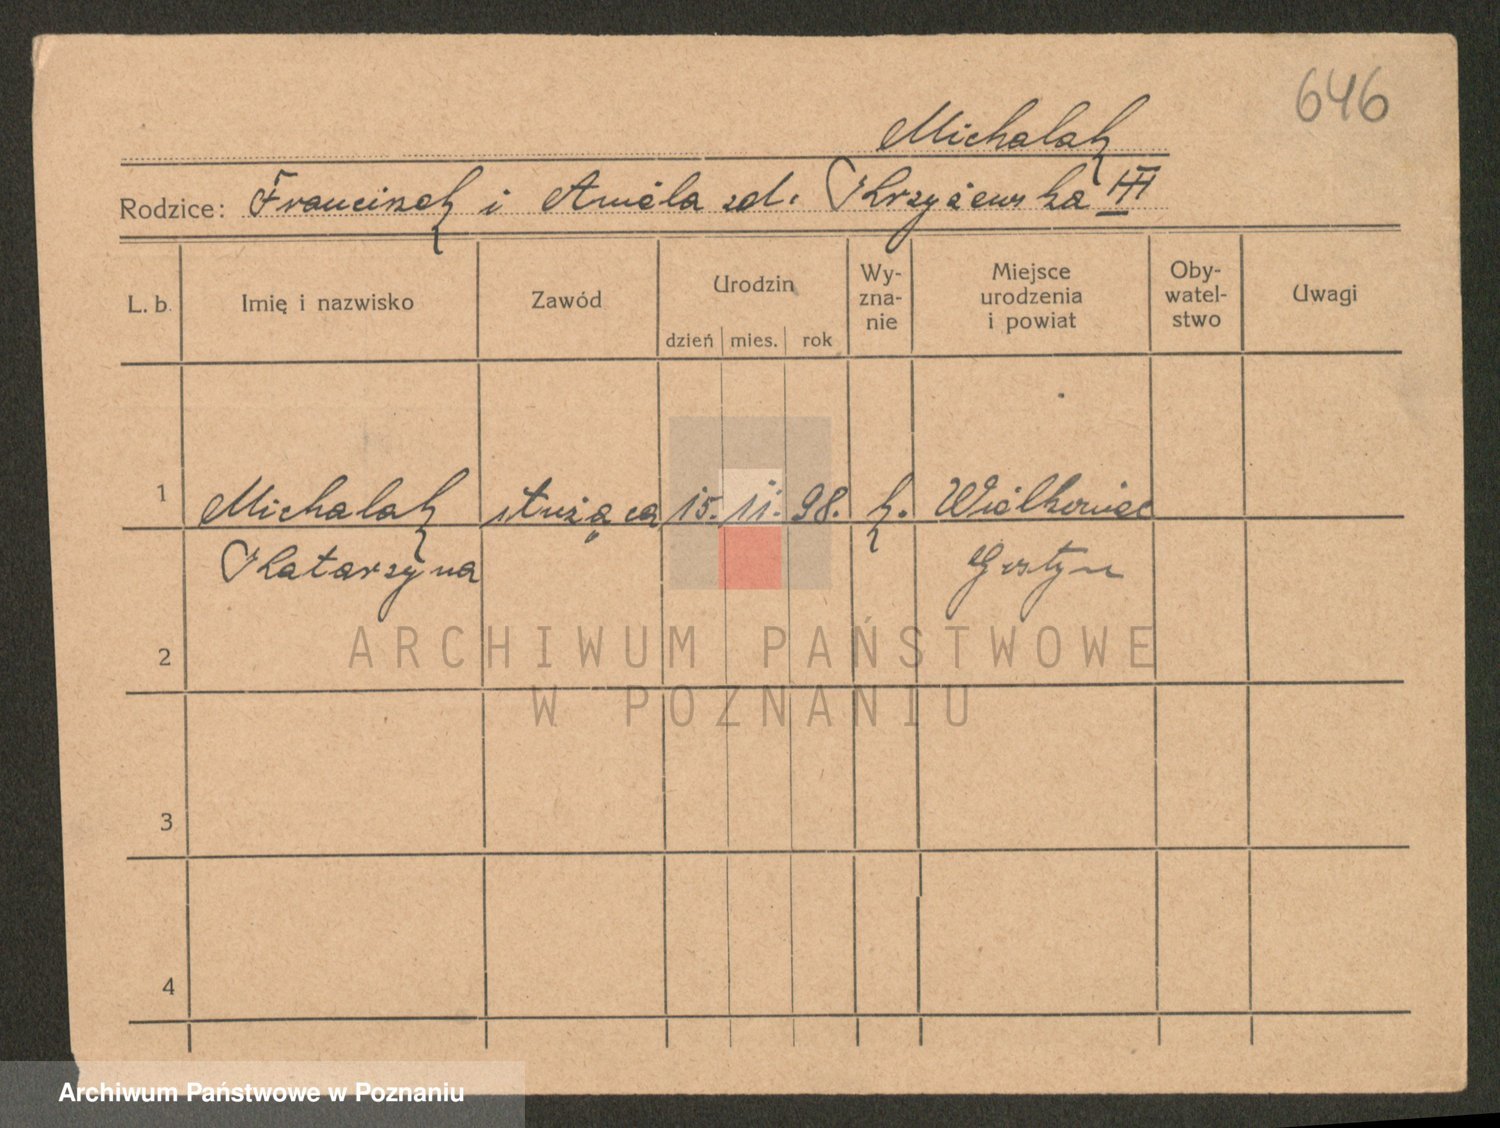 646
Michalak
Rodzice: Franciszek i Aniela zd. Krzyżewska III
L. b. Imię i nazwisko Zawód Urodzin dzień mies. rok Wy-zna-nie Miejsce urodzenia i powiat Oby-watel-stwo Uwagi
1 Michalak służąca 15. 11. 98. k.
Katarzyna Gostyń
2
3
4
ARCHIWUM PAŃSTWOWE
W POZNANIU
Archiwum Państwowe w Poznaniu